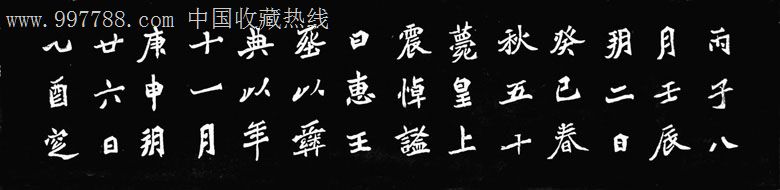 www.997788.com 中国收藏热线
丙子八
月壬辰
朔二日
癸巳春
秋五十
薨皇上
震悼謚
曰惠王
葬以彝
典以年
十一月
庚申朔
廿六日
乙酉窆